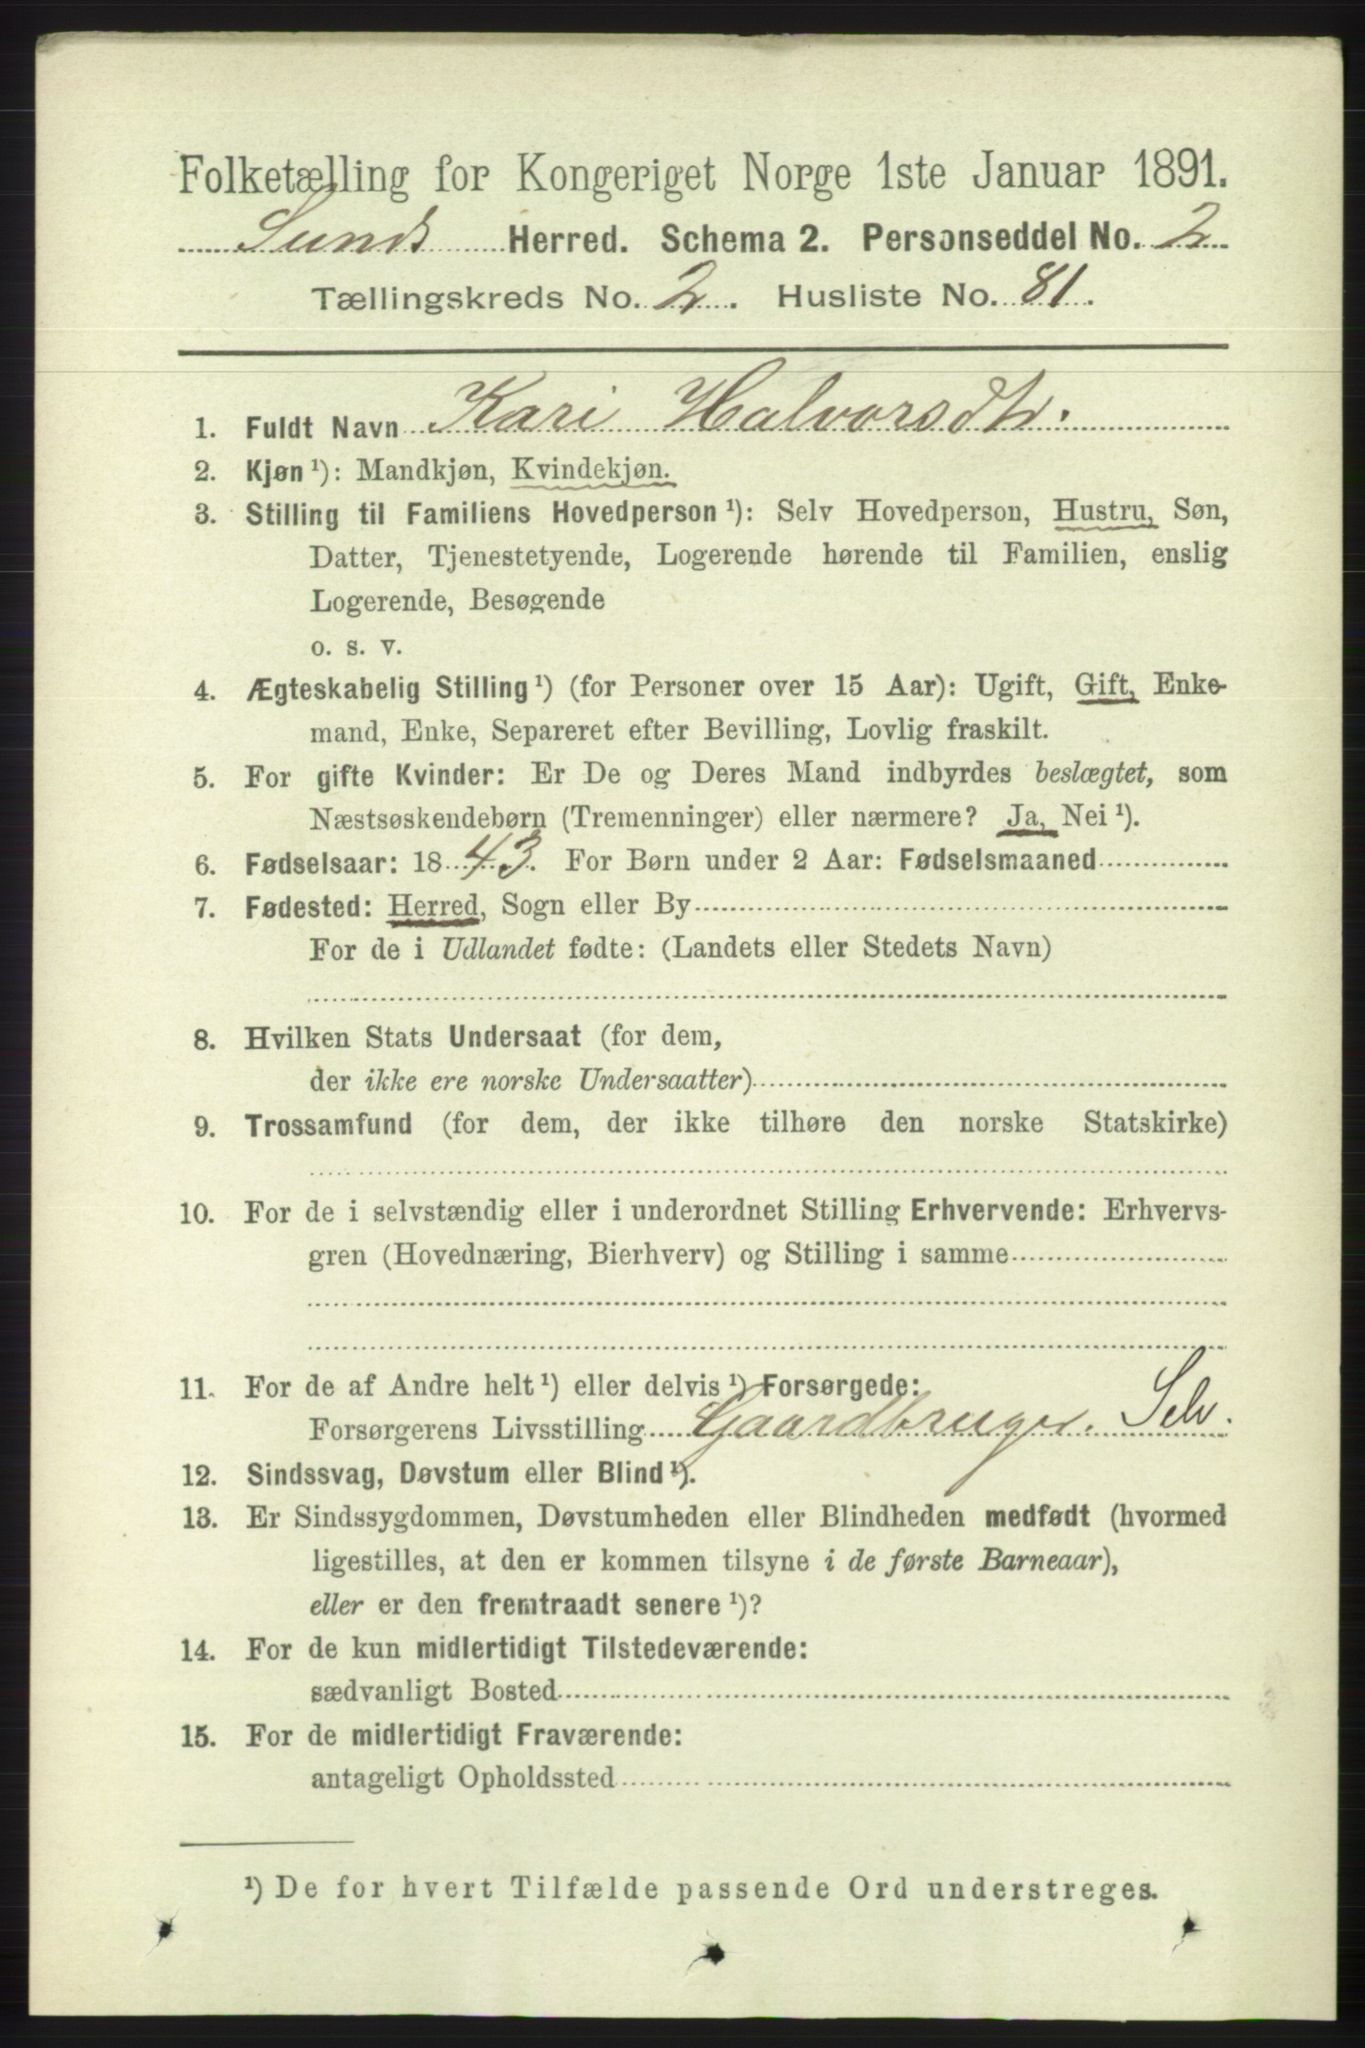 Folketælling for Kongeriget Norge 1ste Januar 1891.
Sunds Herred. Schema 2. Personseddel No. 2
Tællingskreds No. 2. Husliste No. 81.
1. Fuldt Navn Kari Halvorsdtr.
2. Kjøn ¹): Mandkjøn, Kvindekjøn.
3. Stilling til Familiens Hovedperson ¹): Selv Hovedperson, Hustru, Søn,
Datter, Tjenestetyende, Logerende hørende til Familien, enslig
Logerende, Besøgende
o. s. v.
4. Ægteskabelig Stilling ¹) (for Personer over 15 Aar): Ugift, Gift, Enke-
mand, Enke, Separeret efter Bevilling, Lovlig fraskilt.
5. For gifte Kvinder: Er De og Deres Mand indbyrdes beslægtet, som
Næstsøskendebørn (Tremenninger) eller nærmere? Ja, Nei ¹).
6. Fødselsaar: 18 43. For Børn under 2 Aar: Fødselsmaaned
7. Fødested: Herred, Sogn eller By
For de i Udlandet fødte: (Landets eller Stedets Navn)
8. Hvilken Stats Undersaat (for dem,
der ikke ere norske Undersaatter)
9. Trossamfund (for dem, der ikke tilhøre den norske Statskirke)
10. For de i selvstændig eller i underordnet Stilling Erhvervende: Erhvervs-
gren (Hovednæring, Bierhverv) og Stilling i samme
11. For de af Andre helt ¹) eller delvis ¹) Forsørgede:
Forsørgerens Livsstilling Gaardbruger. Selv.
12. Sindssvag, Døvstum eller Blind ¹).
13. Er Sindssygdommen, Døvstumheden eller Blindheden medfødt (hvormed
ligestilles, at den er kommen tilsyne i de første Barneaar),
eller er den fremtraadt senere ¹)?
14. For de kun midlertidigt Tilstedeværende:
sædvanligt Bosted
15. For de midlertidigt Fraværende:
antageligt Opholdssted
¹) De for hvert Tilfælde passende Ord understreges.